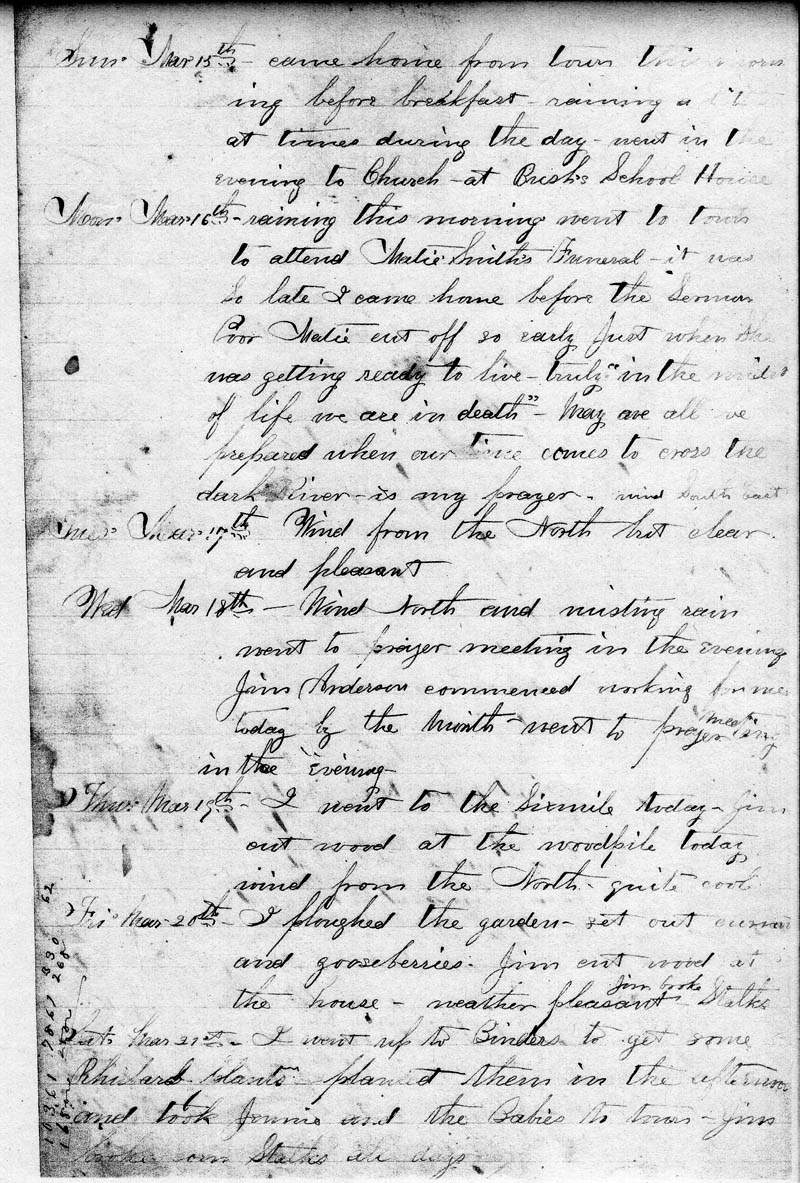 Sun. Mar 15th - came home from town this morn
ing before breakfast - raining a
at times during the day - went in the
evening to Church - at Rush's School House
Mon. Mar. 16th - raining this morning went to town
to attend Matie Smith's Funeral - it was
so late I came home before the Sermon
Poor Matie cut off so early Just when she
was getting ready to live - truly "in the midst
of life we are in death" - May we all be
prepared when our time comes to cross the
dark River - is my prayer - wind South East
Tues. Mar. 17th Wind from the North but clear
and pleasant
Wed Mar 18th - Wind North and misting rain
went to prayer meeting in the evening
Jim Anderson commenced working for me
today by the Month - went to prayer meeting
in the Evening -
Thur. Mar 19th - I went to the Sixmile today - Jim
cut wood at the woodpile today
wind from the North - quite cool
Fri. Mar. 20th - I ploughed the garden - set out currant
and gooseberries. Jim cut wood at
the house - weather pleasant Jim broke Stalks
Sat. Mar 21st - I went up to Binders to get some
Rhubarb Plants - planted them in the afternoon
and took Jennie and the Babies to town - Jim
broke corn Stalks all day